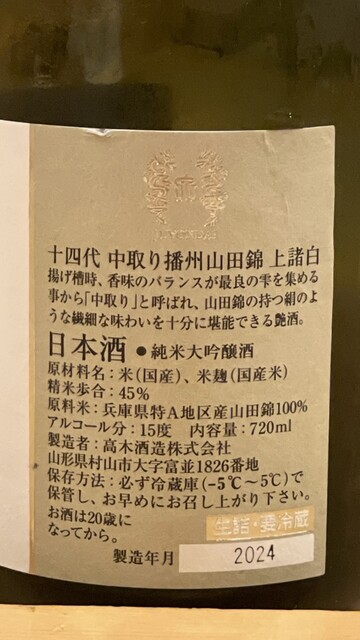 十四代 中取り播州山田錦 上諸白
揚げ槽時、香味のバランスが最良の雫を集める
事から「中取り」と呼ばれ、山田錦の持つ絹のよ
うな繊細な味わいを十分に堪能できる艶酒。
日本酒 ●純米大吟醸酒
原材料名：米(国産)、米麹(国産米)
精米歩合：45%
原料米：兵庫県特A地区産山田錦100%
アルコール分：15度 内容量：720ml
製造者：高木酒造株式会社
山形県村山市大字富並1826番地
保存方法：必ず冷蔵庫(-5℃〜5℃)で
保管し、お早めにお召し上がり下さい。
お酒は20歳に
なってから。
生詰・要冷蔵
製造年月 2024